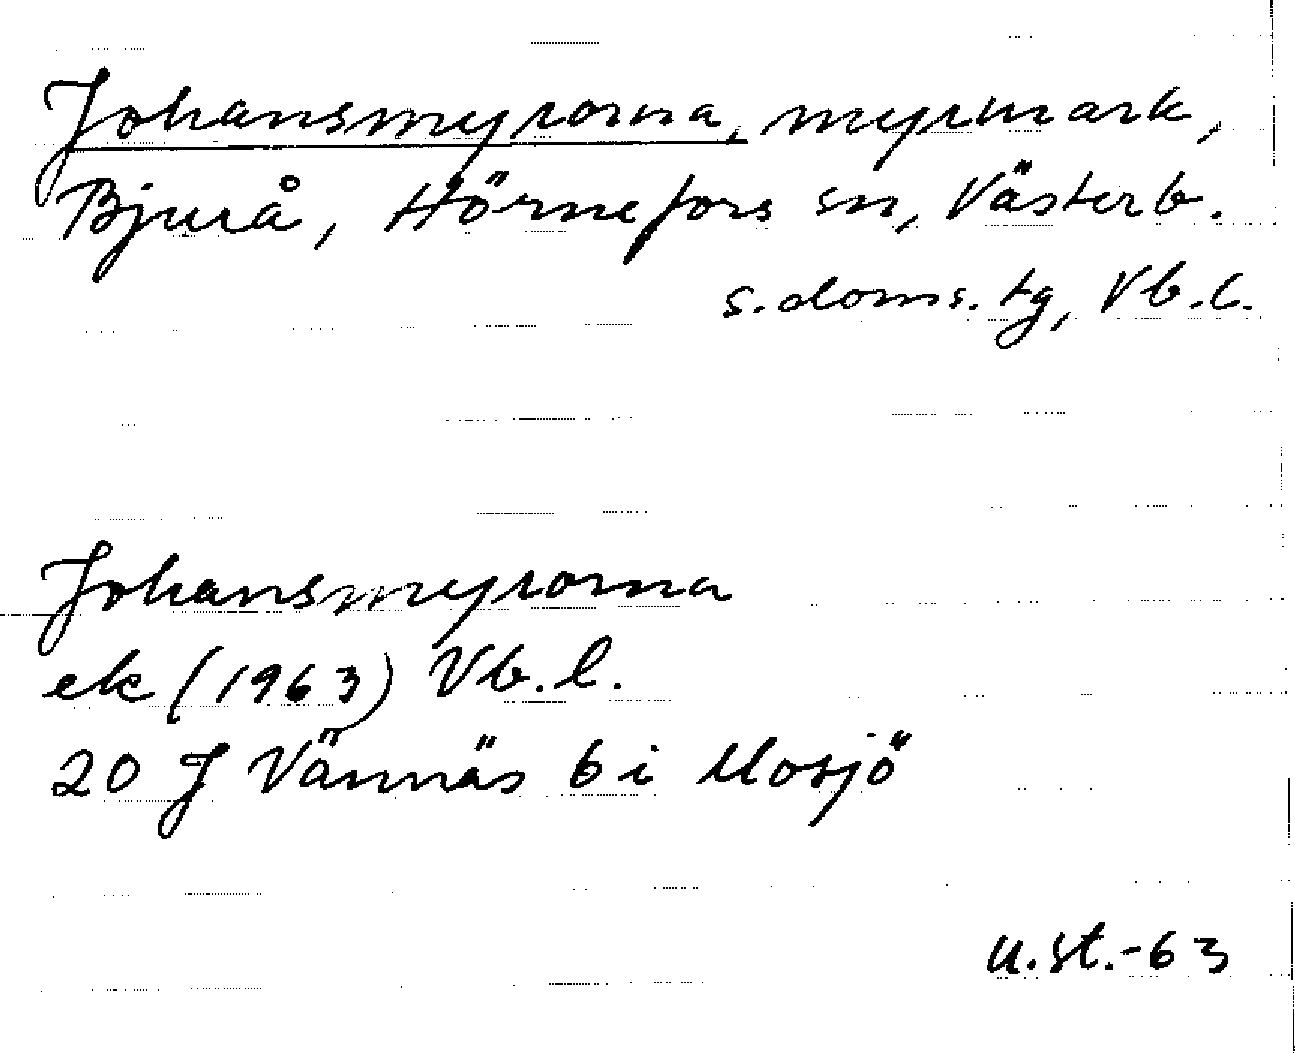 Johansmyrorna, myrmark,
Bjurå, Hörnefors sn, Västerb.
s. doms. tg, Vb. l.
Johansmyrorna
ek (1963) Vb. l.
20 J Vännäs 6 i Mosjö
u. st. -63